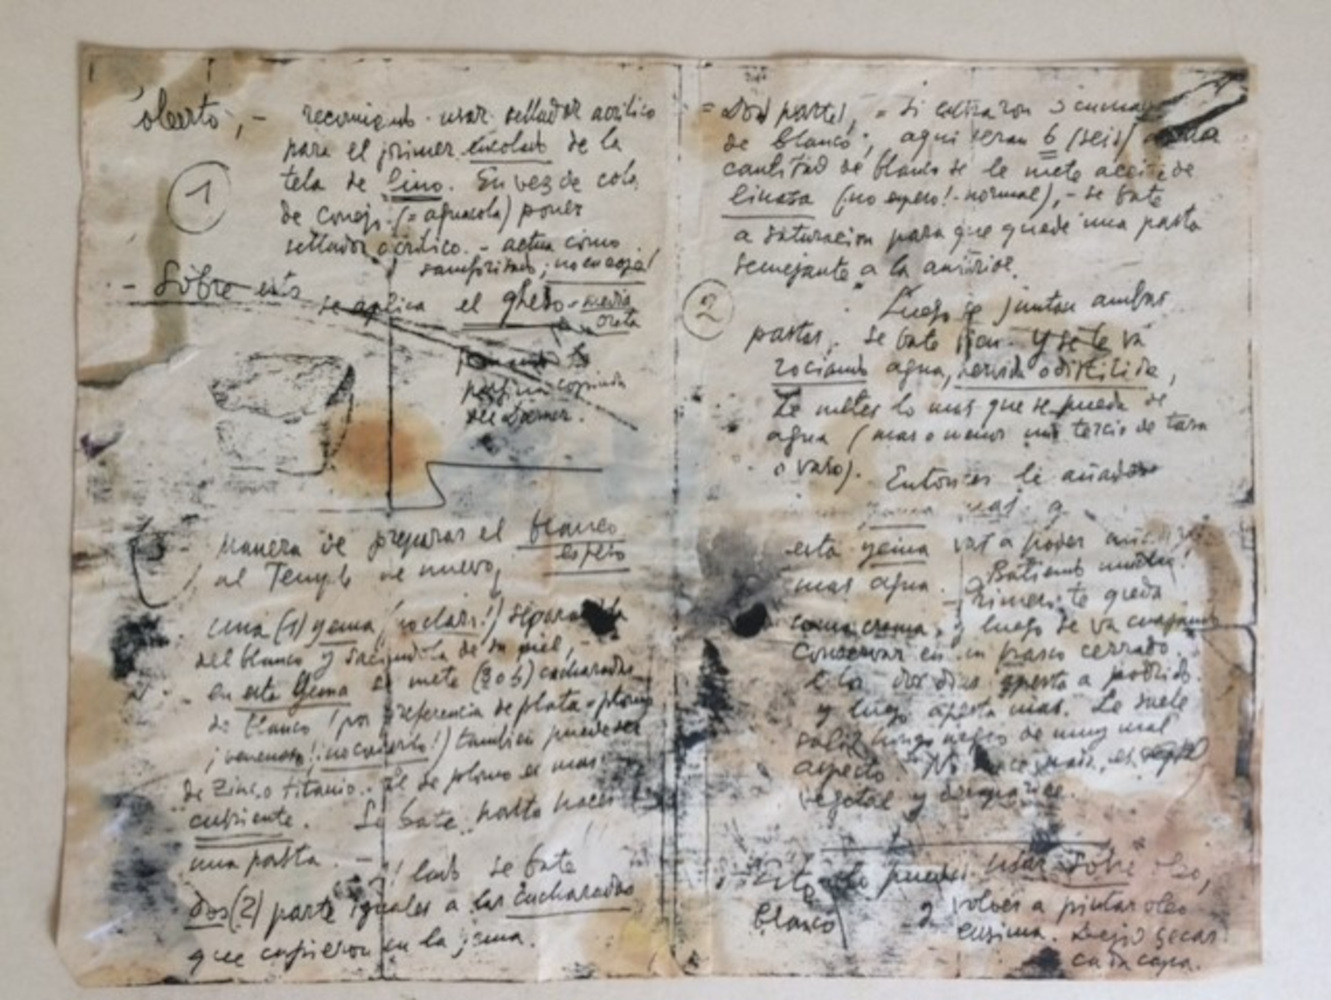 oberto, - recomiendo usar sellador acrilico
para el primer encolado de la
1
tela de lino. En vez de cola
de conejo (= aguacola) pones
sellador acrilico. - actua como
sanforizado; no encoge!
- Sobre esto se aplica el gheso - media
creta
pagina copiada
del Doerner.
Manera de preparar el blanco
espeso
al Temple de nuevo,
una (1) yema, separada
del blanco y sacandola de su piel, -
en esta yema se mete cucharadas
de blanco (por preferencia de plata o plomo
¡venenoso! ¡no comerlo!) también puede ser
de Zinc o titanio. - el de plomo es mas
cubriente. Se bate hasta hacer
una pasta. -
lado se bate
dos (2) partes iguales a las cucharadas
que cupieron en la yema.
= Dos partes, = si entraron 3 cucharadas
de blanco; aqui seran 6 (seis)
cantidad de blanco se le mete aceite de
linaza (no espeso! - normal), - se bate
a saturacion para que quede una pasta
semejante a la anterior.
2
Luego se juntan ambas
pastas. Se bate bien. Y se le va
rociando agua, hervida o distilida,
Le metes lo mas que se pueda de
agua (mas o menos un tercio de taza
o vaso). Entonces le añades
yema mas y
esta yema vas a poder
mas agua. Batiendo mucho!
Primero te queda
como crema, y luego se va cuajando
Conservar en un frasco cerrado.
A los dos dias apesta a podrido
y luego apesta mas. Le suele
salir hongo negro de muy mal
aspecto. No hace nada, es
vegetal y desaparece.
Esto lo puedes usar sobre oleo,
blanco y volver a pintar oleo
encima. Dejo secar
cada capa.